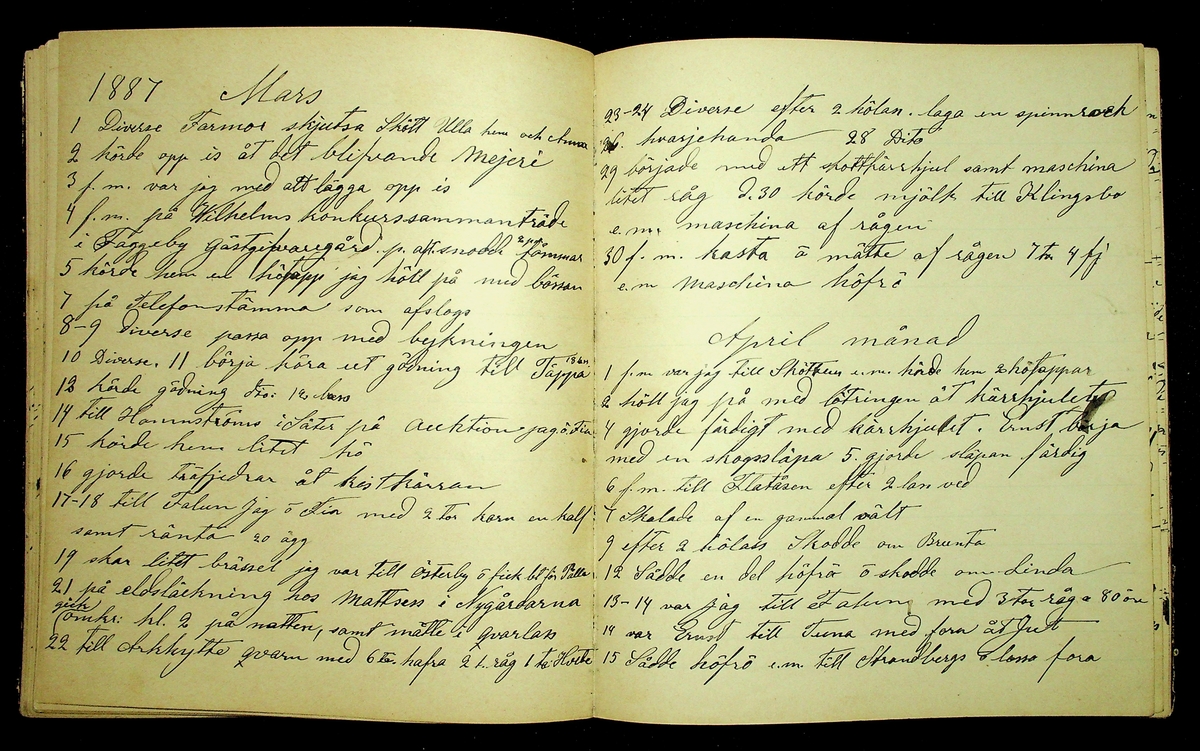 1887 Mars
1 Diverse Farmor skjutsa Skött Ulla hem och Anna
2 körde opp is åt det blifvande Mejeri
3 f.m. var jag med att lägga opp is
4 f.m. på Wilhelms konkurssammanträde
i Fäggeby Gästgifvaregård. p. att. snodde 2 par tömmar
5 körde hem en hötapp jag höll på med bössan
7 på Telefonstämma som afslogs
8-9 Diverse passa opp med bejkningen
10 Diverse. 11 börja köra ut gödning till Täppa
12 körde gödning dto: 12 lass
14 till Hammströms i Säter på Auktion jag ö Tia
15 körde hem litet hö
16 gjorde träfjedrar åt kistkärran
17-18 till Falun Jag ö Tia med 2 tor korn en kalf
samt ränta 20 ägg
19 skar litet brässel jag var till Österby ö fick bt för Pålla
21 på eldsläckning hos Mattses i Nygårdarna
gick omkr: kl. 2 på natten, samt mätte i qvarlass
22 till Arkhytte qvarn med 6 tor hafra 2 t. råg 1 ta Hvete
23-24 Diverse efter 2 hölan. laga en spinnrock
26 hvarjehanda 28 Dito
29 började med ett skottkärrhjul samt maschina
litet råg d. 30 körde mjölk till Klingsbo
e.m. maschina af rågen
30 f.m. kasta ö mätte af rågen 7 tr 4 fj
e.m maschina höfrö
April månad
1 f.m var jag till Skötten e.m. körde hem 2 hötappar
2 höll jag på med lötringen åt kärrhjulet
4 gjorde färdigt med kärrhjulet. Ernst börja
med en skogssläpa 5. gjorde släpan färdig
6 f.m. till Flatåsen efter 2 lass ved
7 Skalade af en gammal vält
9 efter 2 hölass Skodde om Brunta
12 Sådde en del höfrö ö skodde om Linda
13-14 var jag till Falun med 3 tor råg a 80 öre
14 var Ernst till Tuna med fora åt Jut
15 Sådde höfrö e.m. till Strandbergs ö lossa fora